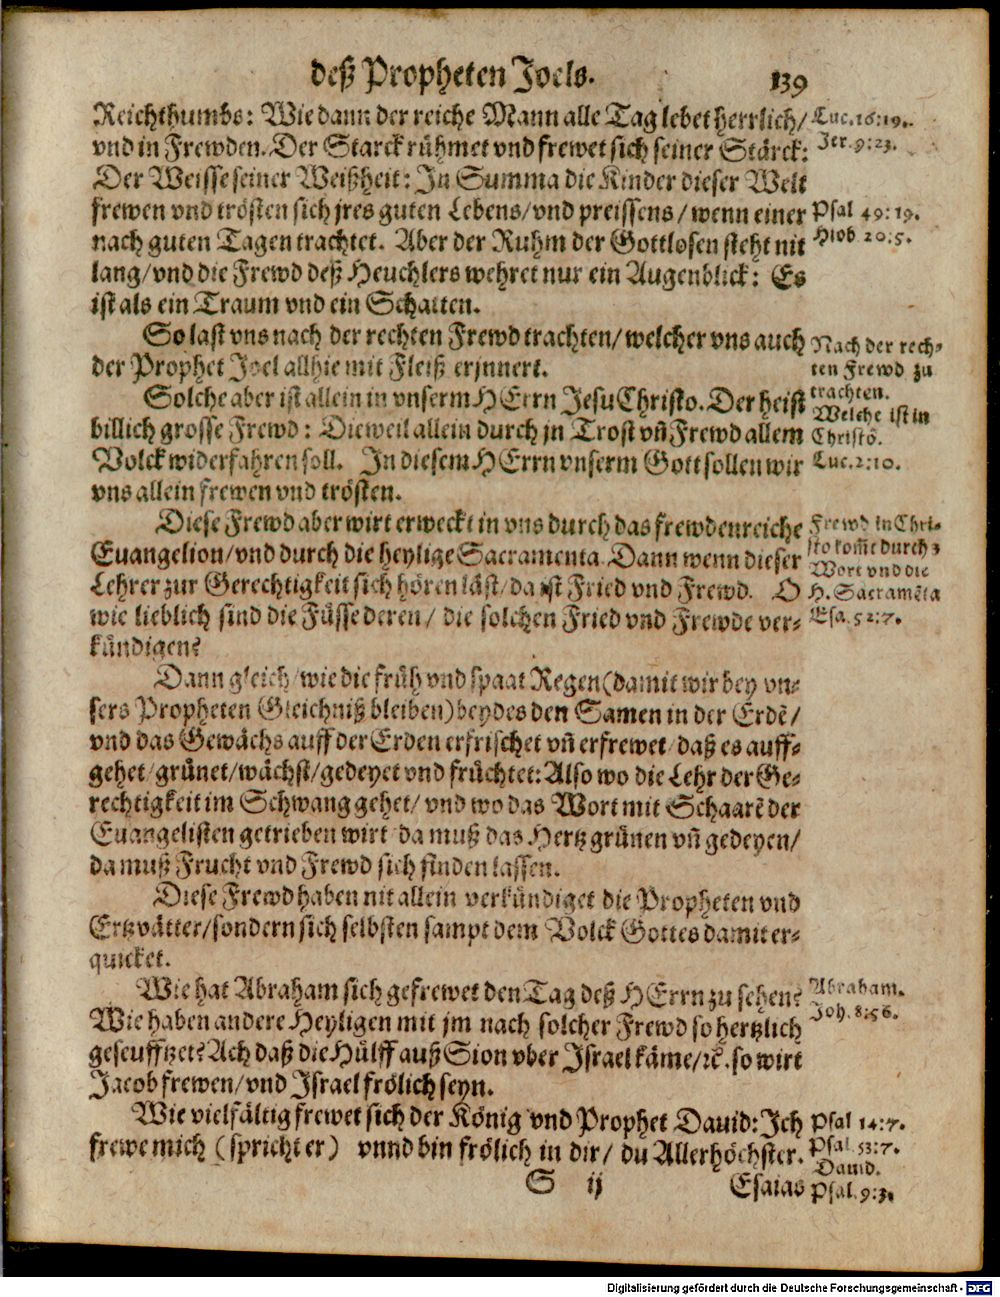 deß Propheten Joels. 139
Reichthumbs: Wie dann der reiche Mann alle Tag lebet herrlich/
vnd in Frewden. Der Starck rühmet vnd frewet sich seiner Stärck:
Der Weisse seiner Weißheit: In Summa die Kinder dieser Welt
frewen vnd trösten sich jres guten Lebens/ vnd preissens/ wenn einer
nach guten Tagen trachtet. Aber der Ruhm der Gottlosen steht nit
lang/ vnd die Frewd deß Heuchlers wehret nur ein Augenblick: Es
ist als ein Traum vnd ein Schatten.
So last vns nach der rechten Frewd trachten/ welcher vns auch
der Prophet Joel allhie mit Fleiß erjnnert.
Solche aber ist allein in vnserm HErrn Jesu Christo. Der heist
billich grosse Frewd: Dieweil allein durch jn Trost vñ Frewd allem
Volck widerfahren soll. In diesem HErrn vnserm Gott sollen wir
vns allein frewen vnd trösten.
Diese Frewd aber wirt erweckt in vns durch das frewdenreiche
Euangelion/ vnd durch die heylige Sacramenta. Dann wenn dieser
Lehrer zur Gerechtigkeit sich hören läst/ da ist Fried vnd Frewd. O
wie lieblich sind die Füsse deren/ die solchen Fried vnd Frewde ver-
kündigen?
Dann gleich/ wie die früh vnd spaat Regen (damit wir bey vn-
sers Propheten Gleichniß bleiben) beydes den Samen in der Erdẽ/
vnd das Gewächs auff der Erden erfrischet vñ erfrewet/ daß es auff-
gehet/ grünet/ wächst/ gedeyet vnd früchtet: Also wo die Lehr der Ge-
rechtigkeit im Schwang gehet/ vnd wo das Wort mit Schaarẽ der
Euangelisten getrieben wirt/ da muß das Hertz grünen vñ gedeyen/
da muß Frucht vnd Frewd sich finden lassen.
Diese Frewd haben nit allein verkündiget die Propheten vnd
Ertzvätter/ sondern sich selbsten sampt dem Volck Gottes damit er-
quicket.
Wie hat Abraham sich gefrewet den Tag deß HErrn zu sehen?
Wie haben andere Heyligen mit jm nach solcher Frewd so hertzlich
geseufftzet? Ach daß die Hülff auß Sion vber Israel käme/ ꝛc. so wirt
Jacob frewen/ vnd Israel frölich seyn.
Wie vielfältig frewet sich der König vnd Prophet Dauid: Ich
frewe mich (spricht er) vnnd bin frölich in dir/ du Allerhöchster.
S ij Esaias
Luc. 16:19.
Jer. 9:23.
Psal 49:19.
Hiob 20:5.
Nach der rech-
ten Frewd zu
trachten.
Welche ist in
Christo.
Luc. 2:10.
Frewd in Chri-
sto kom̃t durch
Wort vnd die
H. Sacramẽta
Esa. 52:7.
Abraham.
Joh. 8:56.
Psal 14:7.
Psal 53:7.
Dauid.
Psal. 9:3.
Digitalisierung gefördert durch die Deutsche Forschungsgemeinschaft - DFG